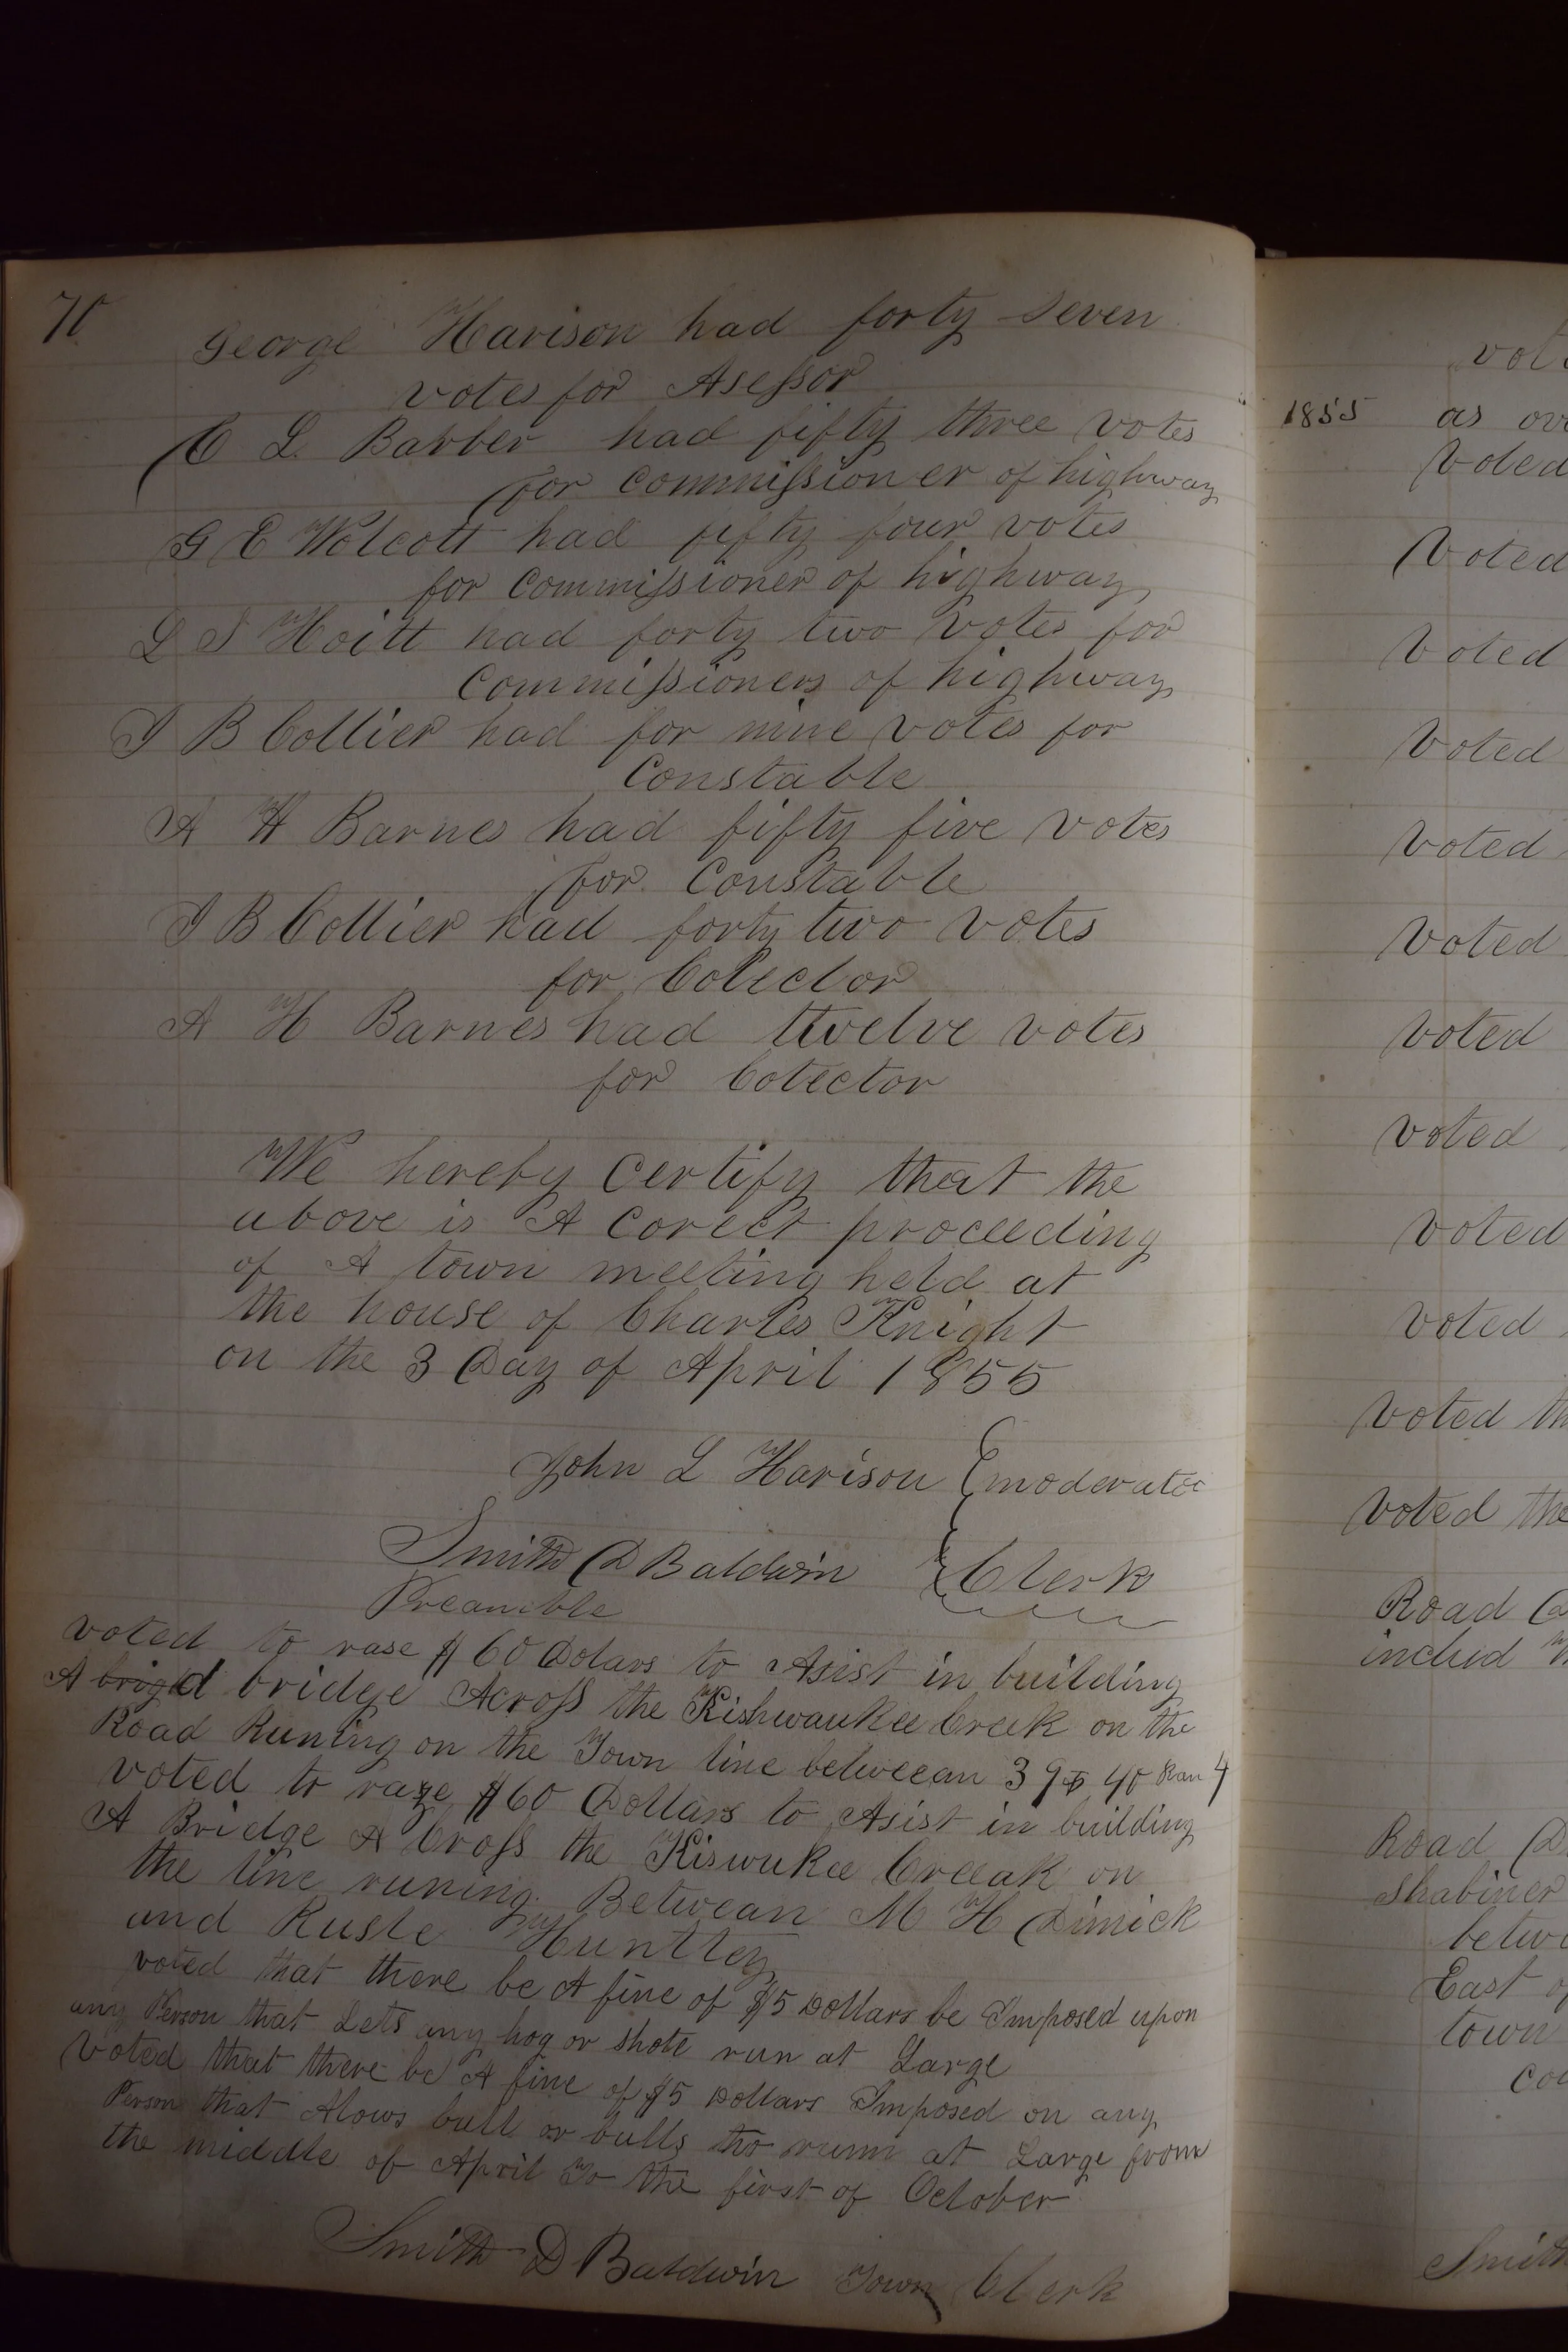 70
George Harison had forty seven
votes for Asessor
C L Barber had fifty three votes
for commissioner of highway
G E Wolcott had fifty four votes
for commissioner of highway
L S Hoitt had forty two votes for
Commissioners of highway
I B Collier had for nine votes for
Constable
A H Barnes had fifty five votes
for Constable
I B Collier had forty two votes
for Colector
A H Barnes had twelve votes
for Colector
We hereby Certify that the
above is A Corect proceeding
of A town meeting held at
the house of Charles Knight
on the 3 Day of April 1855
John L Harison moderator
Smith D Baldwin Clerk
Preamble
voted to rase $60 Dolars to Asist in building
A brigd bridge Across the Kishwaukee Creek on the
Road Runing on the Town line betweean 39 & 40 Ran 4
voted to raze $60 Dollars to Asist in building
A Bridge A Cross the Kiswukee Creeak on
the line runing Betwean M H Dimick
and Rusle Huntley
voted that there be A fine of $5 Dollars be Imposed upon
any Person that Lets any hog or shote run at Large
Voted that there be A fine of $5 Dollars Imposed on any
Person that Alows bull or bulls to runn at Large from
the middle of April To the first of October
Smith D Baldwin Town Clerk
1855 as
Voted
Voted
Voted
Voted
Voted
Voted
Voted
Voted
Voted
Voted
Voted
Voted the
Road
includ
Road
Shabiner
East
town
Smith